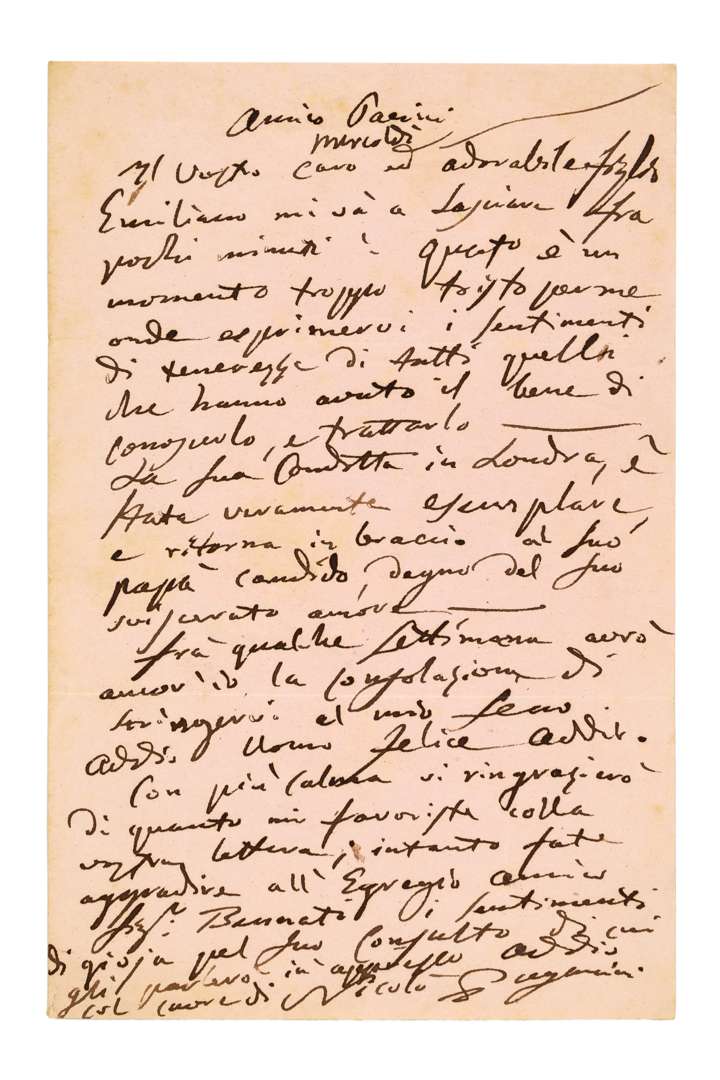 Amico Pacini
Mercoldì
Il Vostro caro ed adorabile figlio
Emiliano mi và a lasciare fra
pochi minuti: questo è un
momento troppo tristo per me
onde esprimervi i sentimenti
di tenerezza di tutti quelli
che hanno avuto il bene di
conoscerlo, e trattarlo
La sua Condotta in Londra, è
stata veramente esemplare,
e ritorna in braccio al suo
papà candido, degno del suo
sviscerato amore
frà qualche settimana avrò
la consolazione di
stringervi al mio seno
addio Uomo felice addio.
Con più calma vi ringrazierò
di quanto mi favoriste colla
vostra lettera; intanto fate
aggradire all'Egregio amico
Sigr. Bennati i sentimenti
di gioja pel suo Consulto di cui
gli parlerò in appresso addio
col cuore di Nicolò Paganini